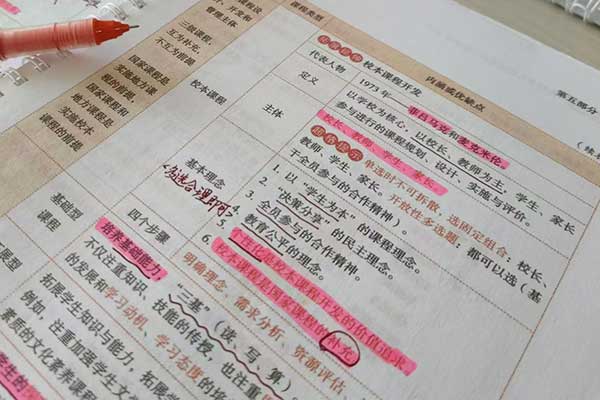 课程类型
内涵或优缺点
第五部分
个、开发和
管理主体
三级课程，
互为补充，
不互为前提。
国家课程是
实施地方课
程的前提，
国家课程和
地方课程是
实施校本
课程的前提。
校本课程
校本课程开发
代表人物
1973年 菲吕马克和麦克米伦。
定义
以学校为核心，以校长、教师为主，学生、家长
参与进行的课程规划、设计、实施与评价。
主体
校长、教师、学生、家长。
单选时不可拆散，选固定组合：校长、
教师、学生、家长。开放性多选题，都可以选（基
于全员参与的合作精神）。
基本理念
勾选合理即可
1. 以“学生为本”的课程理念。
2. “决策分享”的民主理念。
全员参与的合作精神。
教育公平的理念。
5. 个性化是校本课程开发的价值追求。
6. 校本课程是国家课程的补充
四个步骤
明确理念、需求分析、资源评估、
基础型
课程
培养基础能力
“三基”（读、写、算）
不仅注重知识、技能的传授，也注重
的发展和学习动机、学习态度的培
拓展学生知识与能力，拓展
例如，注重加强学生文学
素质的文化素养课程
展型
学生的